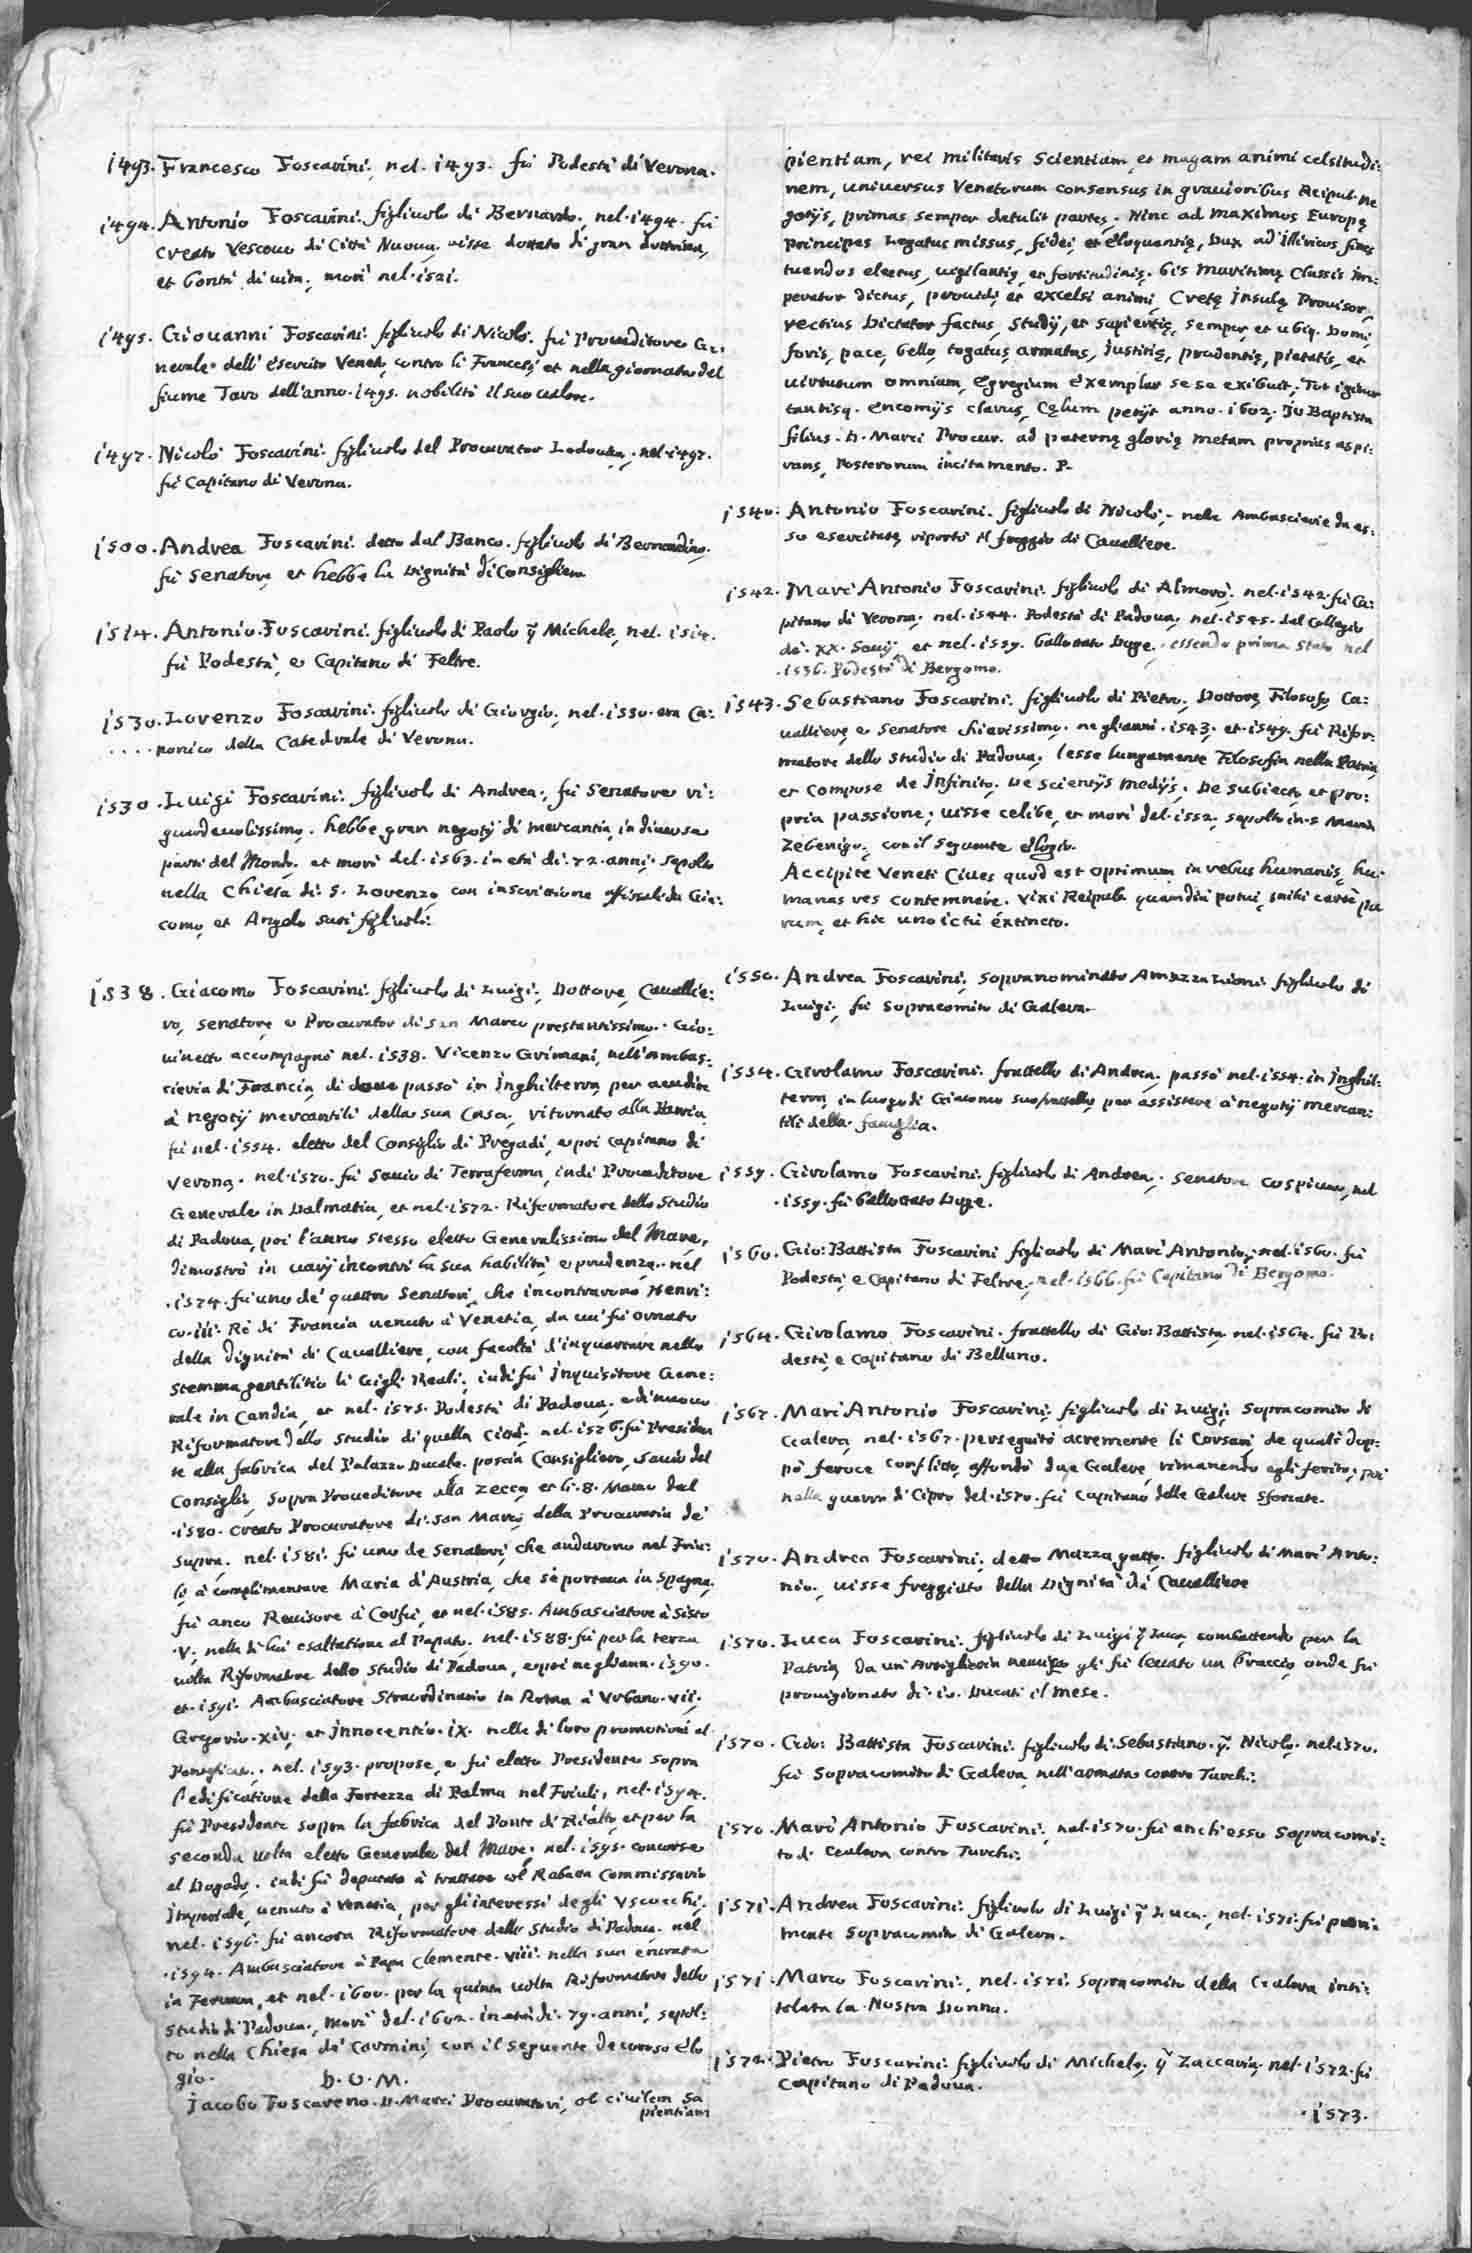 1493. Francesco Foscarini, nel. 1493. fù Podestà di Verona.
1494. Antonio Foscarini. figliuolo di Bernardo, nel. 1494. fù
creato Vescovo di Città Nuova, visse dottato di gran dottrina,
et bontà di vita, morì nel. 1521.
1495. Giouanni Foscarini. figliuolo di Nicolò. fù Proueditore Ge:
nerale dell'esercito Veneto contro li Francesi, et nella giornata del
fiume Tavo dell'anno. 1495. nobilitò il suo ualore.
1497. Nicolò Foscarini. figliuolo del Procurator Lodouico, nel. 1497.
fù Capitano di Verona.
1500. Andrea Foscarini. detto dal Banco. figliuolo di Bernardino.
fù Senatore, et hebbe la Dignità di Consigliere
1514. Antonio. Foscarini. figliuolo di Paolo q̃ Michele, nel. 1514.
fù Podestà, e Capitano di Feltre.
1530. Lorenzo Foscarini. figliuolo di Giorgio, nel. 1530. era Ca:
.... nonico della Catedrale di Verona.
1530. Luigi Foscarini. figliuolo di Andrea, fù Senatore ri:
guardeuolissimo. hebbe gran negotij di mercantia, in diuerse
parti del Mondo, et morì del. 1563. in età di. 72. anni, sepolto
nella Chiesa di S. Lorenzo con inscrittione affissali da Gia:
como, et Angelo suoi figliuoli.
1538. Giacomo Foscarini. figliuolo di Luigi, Dottore, Caualie:
ro, Senatore, e Procurator di San Marco prestantissimo. Gio:
uinetto accompagnò nel. 1538. Vicenzo Grimani, nell'Ambas:
cieria di Francia, di doue passò in Inghilterra, per accudire
à negotij mercantili della sua Casa, ritornato alla Patria
fù nel. 1554. eletto del Consiglio di Pregadi, e poi capitano di
Verona. nel. 1570. fù Sauio di Terraferma, indi Proueditore
Generale in Dalmatia, et nel. 1572. Riformatore dello Studio
di Padoua, poi l'anno stesso eletto Generalissimo del Mare,
dimostrò in uarij incontri la sua habilità, e prudenza. nel
.1574. fù uno de' quattro Senatori, che incontrarono Henri:
co. iii. Rè di Francia uenuto à Venetia, da cui fù ornato
della dignità di Caualliere, con facoltà d'inquartare nello
stemma gentilitio li Gigli Reali, indi fù Inquisitore Gene:
rale in Candia, et nel. 1575. Podestà di Padoua, e di nuouo
Riformatore dello Studio di quella Città. nel. 1576. fù Presiden
te alla fabrica del Palazzo Ducale. poscia Consigliero, Sauio del
Consiglio, Sopra Proueditore alla Zecca, et li. 8. Marzo del
.1580. creato Procuratore di San Marco, della Procuratia de'
Supra. nel. 1581. fù uno de Senatori, che andarono nel Friu:
li, à complimentare Maria d'Austria, che si portaua in Spagna,
fù anco Reuisore à Corfù, et nel. 1585. Ambasciatore à Sisto
.V., nella di lui esaltatione al Papato. nel. 1588. fù per la terza
uolta Riformatore dello Studio di Padoua, e poi negl'anni. 1590.
et. 1591. Ambasciatore Straordinario in Roma à Vrbano. vii.
Gregorio. xiv, et Innocentio. ix. nelle di loro promotioni al
Ponteficato. nel. 1593. propose, e fù eletto Presidente sopra
l'edificatione della Fortezza di Palma nel Friuli, nel. 1594.
fù Presidente sopra la fabrica del Ponte di Rialto, et per la
seconda uolta eletto Generale del Mare, nel. 1595. concorse
al Dogado. indi fù deputato à trattare col Rabatta Commissario
Imperiale, uenuto à Venetia, per gli interessi degli Vscocchi.
nel. 1596. fù ancora Riformatore dello Studio di Padoua, nel
.1594. Ambasciatore à Papa Clemente. viii. nella sua entrata
in Ferrara, et nel. 1600. per la quinta uolta Riformatore dello
Studio di Padoua, morì del. 1602. in età di. 79. anni, sepol:
to nella Chiesa de' Carmini, con il seguente decoroso Elo
gio.
D. O. M.
Jacobo Foscareno. D. Marci Procuratori, ob ciuilem sa
pientiam
pientiam, rei militaris scientiam, et magnam animi celsitudi:
nem, uniuersus Venetorum consensus in grauioribus Reipub. ne
gotijs, primas semper detulit partes. Hinc ad maximos Europę
Principes Legatus missus, fidei, et eloquentię, Dux ad Illiricos fines
tuendos electus, uigilantię, et fortitudinis. bis maritimę Classis Im:
perator dictus, prouidi, et excelsi animi, Cretę Insulę Prouisor,
rectius Dictator factus, Studij, et sapientię, semper, et ubiq. Domi,
foris, pace, bello, togatus, armatus, Justitię, prudentię, pietatis, et
uirtutum omnium, Egregium Exemplar se se exibuit, Tot igitur
tantisq. encomijs clarus, Cęlum petijt anno. 1602. Jo Baptista
filius. D. Marci Procur. ad paternę glorię metam proprius aspi:
rans, Posterorum incitamento. P.
1540. Antonio Foscarini. figliuolo di Nicolò, nelle Ambascierie da es:
so esercitate, riportò il freggio di Caualliere.
1542. Marc'Antonio Foscarini. figliuolo di Almorò, nel. 1542. fù Ca:
pitano di Verona, nel. 1544. Podestà di Padoua, nel. 1545. del Collegio
de'. XX. Sauij, et nel. 1559. ballottato Duge. essendo prima stato nel
.1536. Podestà di Bergomo.
1543. Sebastiano Foscarini, figliuolo di Pietro, Dottore, Filosofo, Ca:
ualliere, e Senatore chiarissimo. negl'anni. 1543. et. 1549. fù Rifor:
matore dello Studio di Padoua, lesse lungamente Filosofia nella Patria,
et compose de Infinito. De scientijs medijs. De subiecto, et pro:
pria passione; uisse celibe, et morì del. 1552. sepolto in S. Maria
Zebenigo, con il seguente Elogio.
Accipite Veneti Ciues quod est optimum in rebus humanis, hu
manas res contemnere. vixi Reipub. quamdiù potui, mihi certè pa
rum, et hic uno ictu extincto.
1550. Andrea Foscarini, sopranominato Amazza Lioni figliuolo di
Luigi. fù Sopracomito di Galera.
1554. Girolamo Foscarini. frattello di Andrea, passò nel. 1554. in Inghil:
terra, in luogo di Giacomo suo frattello, per assistere à negotij mercan:
tili della famiglia.
1559. Girolamo Foscarini. figliuolo di Andrea. Senatore cospicuo, nel
.1559. fù ballottato Duge.
1560. Gio: Battista Foscarini figliuolo di Marc'Antonio, nel. 1560. fù
Podestà, e Capitano di Feltre, nel. 1566. fù Capitano di Bergomo.
1564. Girolamo Foscarini. frattello di Gio: Battista, nel. 1564. fù Po:
destà, e Capitano di Belluno.
1567. Marc'Antonio Foscarini, figliuolo di Luigi, Sopracomito di
Galera, nel. 1567. perseguitò acremente li Corsari, de quali dop:
pò feroce conflitto, affondò due Galere, rimanendo egli ferito; poi
nella guerra di Cipro del. 1570. fù Capitano delle Galere Sforzate.
1570. Andrea Foscarini, detto Mazza gatto. figliuolo di Marc'Anto:
nio, uisse freggiato della Dignità di Caualliere
1570. Luca Foscarini. figliuolo di Luigi q̃ Luca, combattendo per la
Patria, da un'Artiglieria nemica gli fù leuato un braccio, onde fù
prouigionato di. 10. Ducati il mese.
1570. Gio: Battista Foscarini. figliuolo di Sebastiano. q̃. Nicolò. nel. 1570.
fù Sopracomito di Galera, nell'armata contro Turchi.
1570. Marc'Antonio Foscarini, nel. 1570. fù anch'esso Sopracomi:
to di Galera contro Turchi.
1571. Andrea Foscarini. figliuolo di Luigi q̃ Luca, nel. 1571. fù pari:
mente Sopracomito di Galera.
1571. Marco Foscarini, nel. 1571. Sopracomito della Galera inti:
tolata la Nostra Donna.
1572. Pietro Foscarini. figliuolo di Michele, q̃ Zaccaria, nel. 1572. fù
Capitano di Padoua.
.1573.